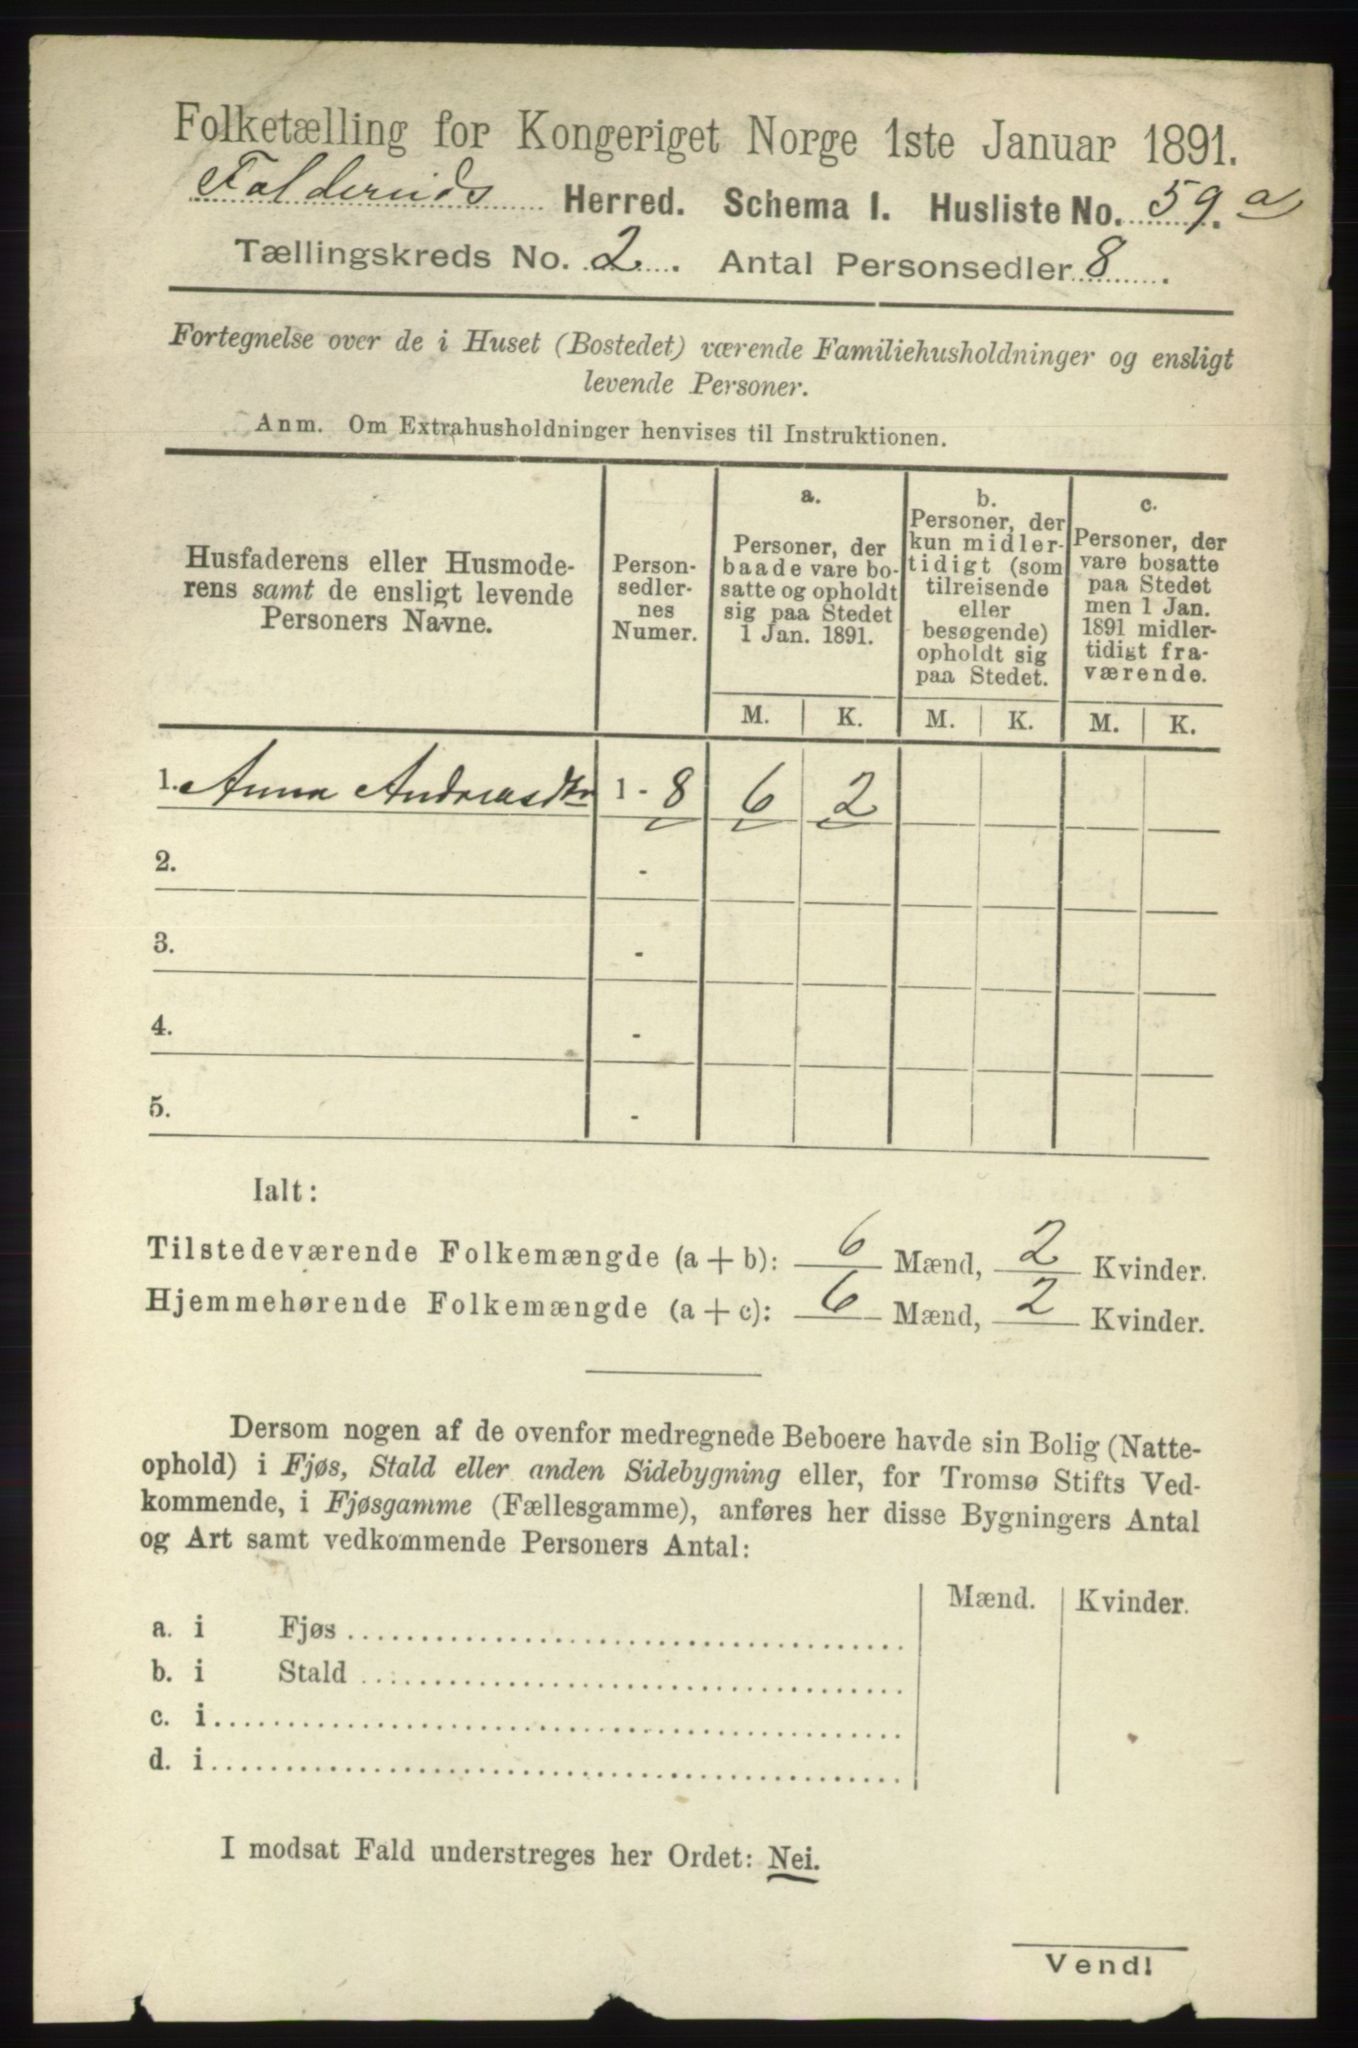 Folketælling for Kongeriget Norge 1ste Januar 1891.
Foldereids Herred. Schema I. Husliste No. 59. a
Tællingskreds No. 2. Antal Personsedler 8.
Fortegnelse over de i Huset (Bostedet) værende Familiehusholdninger og ensligt
levende Personer.
Anm. Om Extrahusholdninger henvises til Instruktionen.
Husfaderens eller Husmode-
rens samt de ensligt levende
Personers Navne.
Person-
sedler-
nes
Numer.
a.
Personer, der
baade vare bo-
satte og opholdt
sig paa Stedet
1 Jan. 1891.
b.
Personer, der
kun midler-
tidigt (som
tilreisende
eller
besøgende)
opholdt sig
paa Stedet.
c.
Personer, der
vare bosatte
paa Stedet
men 1 Jan.
1891 midler-
tidigt fra-
værende.
M. K. M. K. M. K.
1. Anna Andreasdtr 1 - 8 6 2
2. -
3. -
4. -
5. -
Ialt:
Tilstedeværende Folkemængde (a + b): 6 Mænd, 2 Kvinder.
Hjemmehørende Folkemængde (a + c): 6 Mænd, 2 Kvinder.
Dersom nogen af de ovenfor medregnede Beboere havde sin Bolig (Natte-
ophold) i Fjøs, Stald eller anden Sidebygning eller, for Tromsø Stifts Ved-
kommende, i Fjøsgamme (Fællesgamme), anføres her disse Bygningers Antal
og Art samt vedkommende Personers Antal:
Mænd. Kvinder.
a. i Fjøs
b. i Stald
c. i
d. i
I modsat Fald understreges her Ordet: Nei.
Vend!